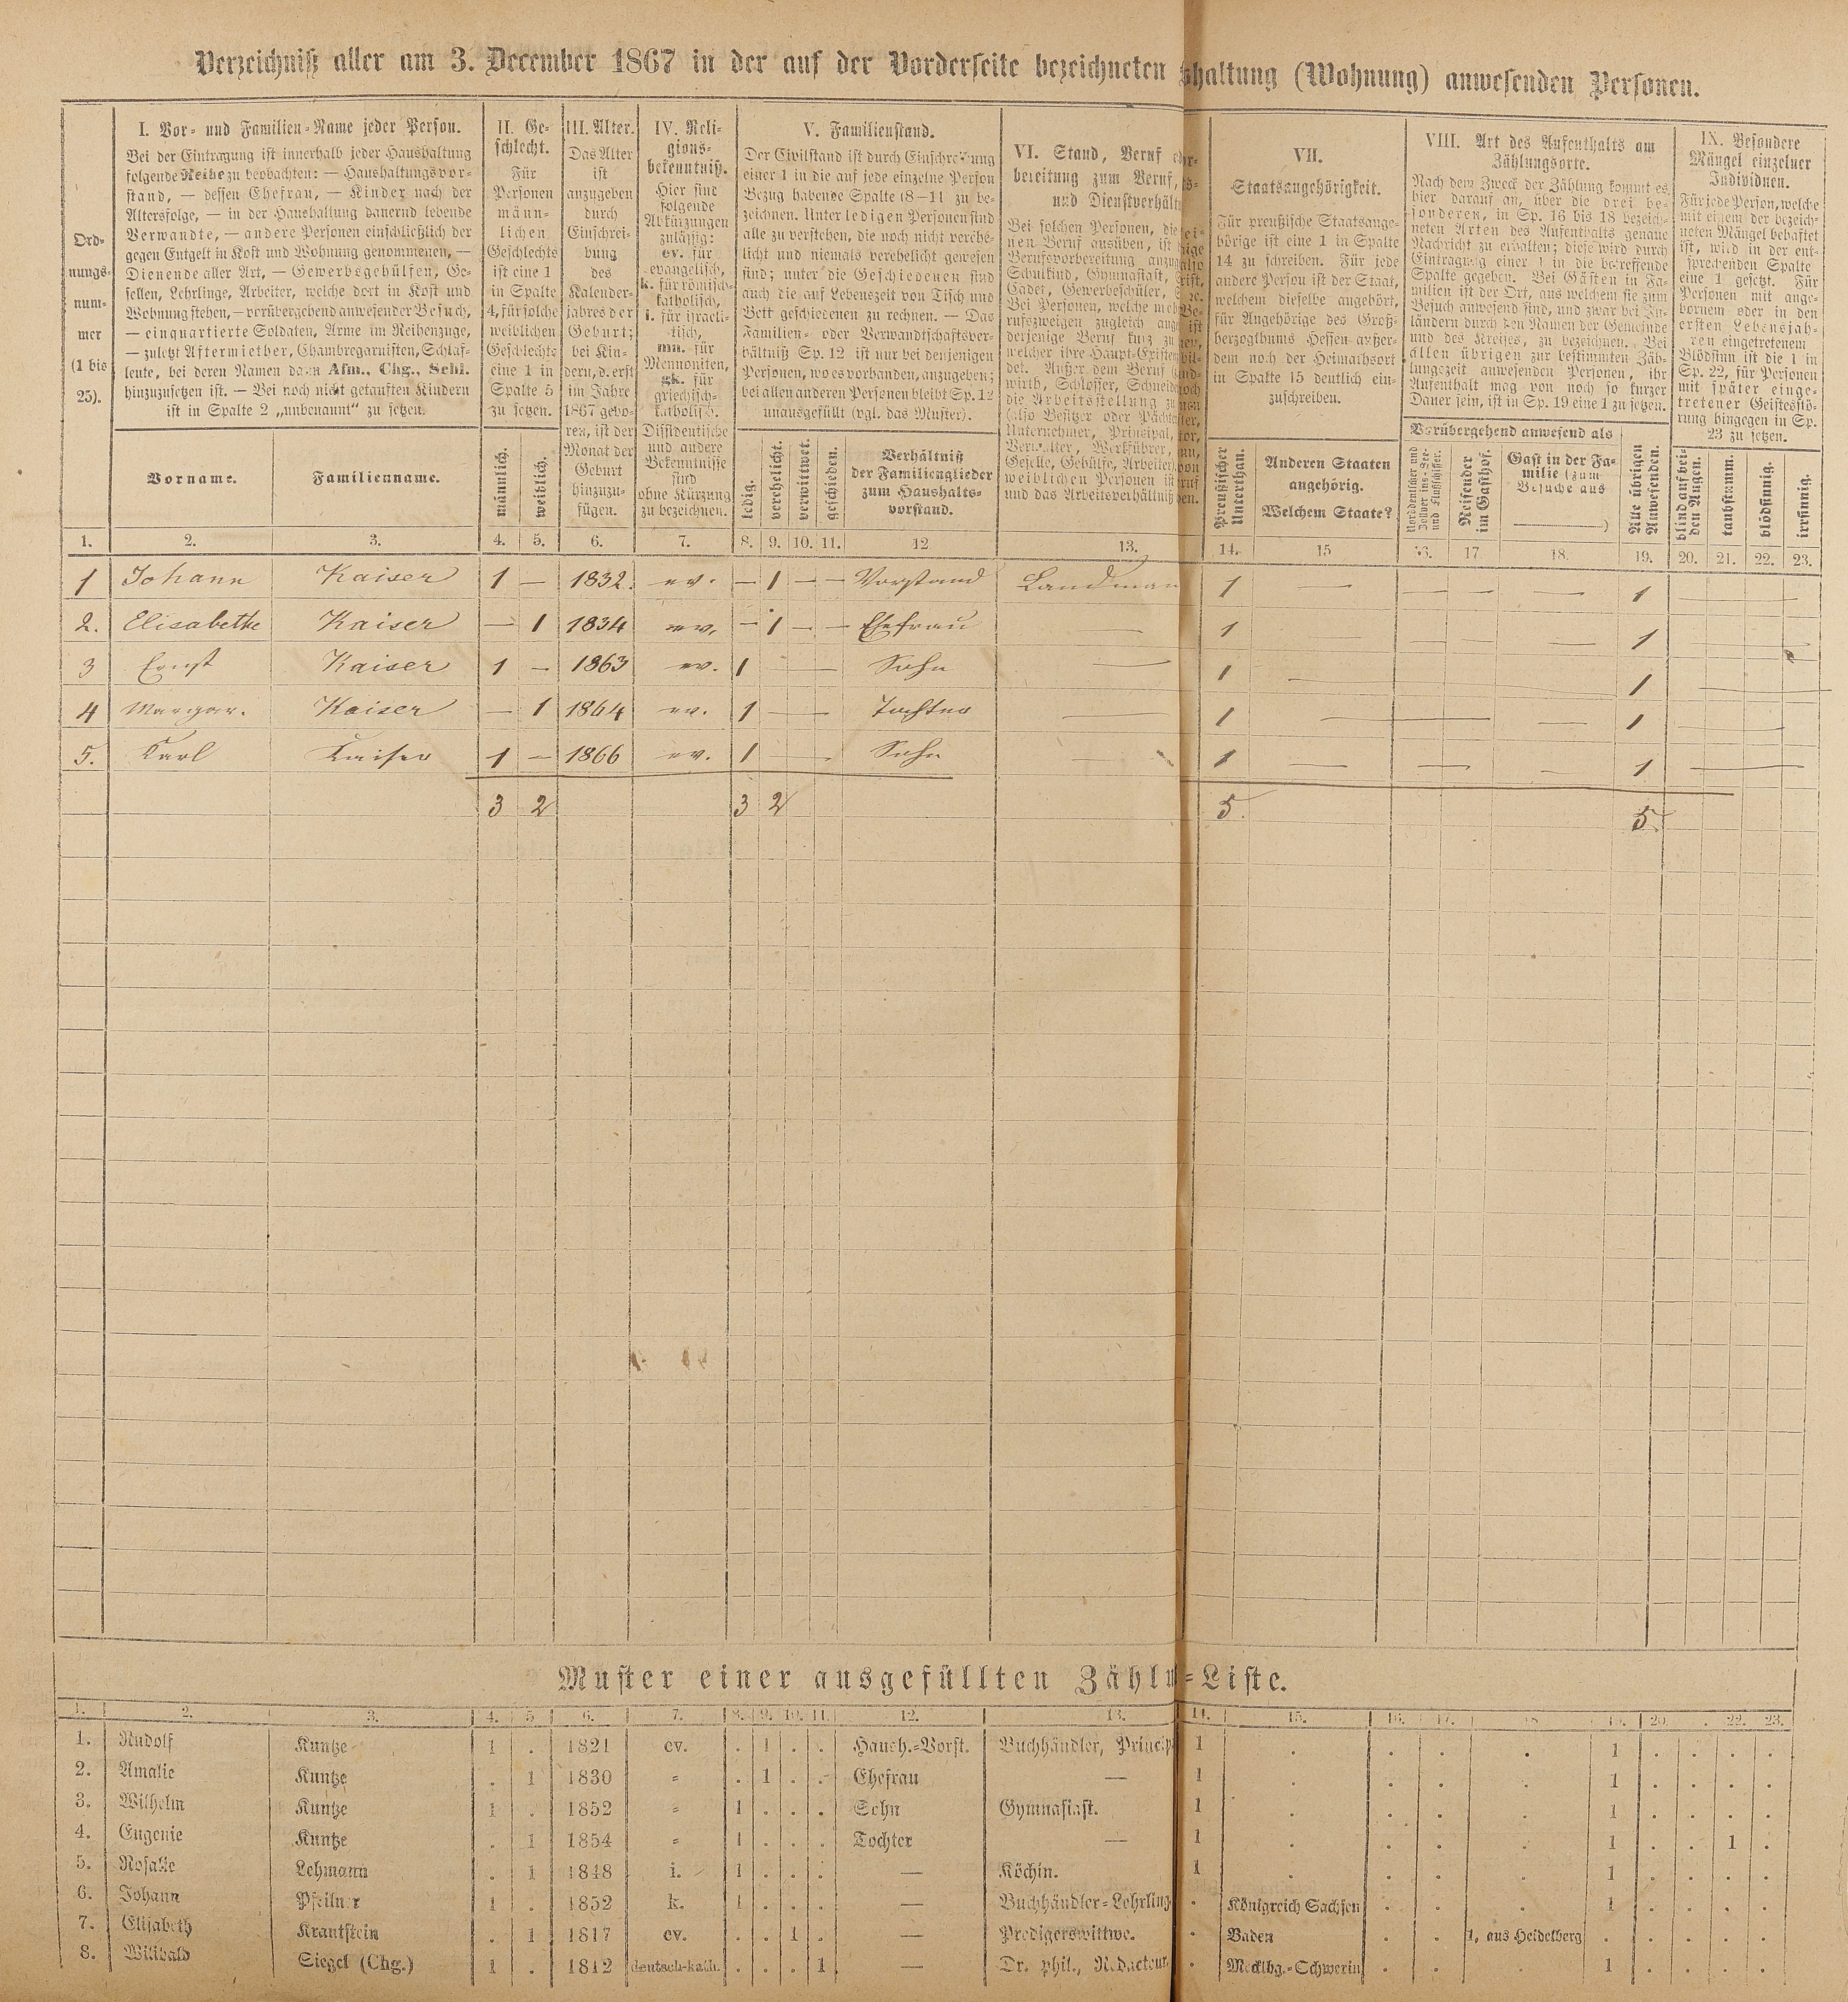 Verzeichniß aller am 3. December 1867 in der auf der Vorderseite bezeichneten haltung (Wohnung) anwesenden Personen.
Ord-
nungs-
num-
mer
(1 bis
25).
I. Vor- und Familien-Name jeder Person.
Bei der Eintragung ist innerhalb jeder Haushaltung
folgende Reihe zu beobachten: — Haushaltungsvor-
stand, — dessen Ehefrau, — Kinder nach der
Altersfolge, — in der Haushaltung dauernd lebende
Verwandte, — andere Personen einschließlich der
gegen Entgelt in Kost und Wohnung genommenen, —
Dienende aller Art, — Gewerbsgehülfen, Ge-
sellen, Lehrlinge, Arbeiter, welche dort in Kost und
Wohnung stehen, — vorübergehend anwesender Besuch,
— einquartierte Soldaten, Arme im Reihenzuge,
— zuletzt Aftermiether, Chambregarnisten, Schlaf-
leute, bei deren Namen dann Afm., Chg., Schl.
hinzuzusetzen ist. — Bei noch nicht getauften Kindern
ist in Spalte 2 „unbenannt“ zu setzen.
Vorname.
Familienname.
II. Ge-
schlecht.
Für
Personen
männ-
lichen
Geschlechts
ist eine 1
in Spalte
4, für solche
weiblichen
Geschlechts
eine 1 in
Spalte 5
zu setzen.
männlich.
weiblich.
III. Alter.
Das Alter
ist
anzugeben
durch
Einschrei-
bung
des
Kalender-
jahres der
Geburt;
bei Kin-
dern, d. erst
im Jahre
1867 gebo-
ren, ist der
Monat der
Geburt
hinzuzu-
fügen.
IV. Reli-
gions-
bekenntniß.
Hier sind
folgende
Abkürzungen
zulässig:
ev. für
evangelisch,
k. für römisch-
katholisch,
i. für israeli-
tisch,
mn. für
Mennoniten,
gk. für
griechisch-
katholisch.
Dissidentische
und andere
Bekenntnisse
sind
ohne Kürzung
zu bezeichnen.
V. Familienstand.
Der Civilstand ist durch Einschreibung
einer 1 in die auf jede einzelne Person
Bezug habende Spalte (8—11) zu be-
zeichnen. Unter ledigen Personen sind
alle zu verstehen, die noch nicht verehe-
licht und niemals verehelicht gewesen
sind; unter die Geschiedenen sind
auch die auf Lebenszeit von Tisch und
Bett geschiedenen zu rechnen. — Das
Familien- oder Verwandtschaftsver-
hältniß Sp. 12 ist nur bei denjenigen
Personen, wo es vorhanden, anzugeben;
bei allen anderen Personen bleibt Sp. 12
unausgefüllt (vgl. das Muster).
ledig.
verehelicht.
verwittwet.
geschieden.
Verhältniß
der Familienglieder
zum Haushalts-
vorstand.
VI. Stand, Beruf
bereitung zum Beruf,
und Dienstverhält
Bei solchen Personen, die
nen Beruf ausüben, ist
Berufsvorbereitung
Schulkind, Gymnasiast,
Cadet, Gewerbeschüler,
Bei Personen, welche
rufszweigen zugleich
derjenige Beruf kurz zu
welcher ihre Haupt-
det. Außer dem Beruf
wirth, Schlosser,
die Arbeitsstellung
(also Besitzer oder
Unternehmer, Principal,
Verwalter, Werkführer,
Geselle, Gehülfe,
weiblichen Personen ist
und das Arbeitsverhältniß
VII.
Staatsangehörigkeit.
Für preußische Staatsange-
hörige ist eine 1 in Spalte
14 zu schreiben. Für jede
andere Person ist der Staat,
welchem dieselbe angehört,
für Angehörige des Groß-
herzogthums Hessen außer-
dem noch der Heimathsort
in Spalte 15 deutlich ein-
zuschreiben.
Preußischer
Unterthan.
Anderen Staaten
angehörig.
Welchem Staate?
VIII. Art des Aufenthalts am
Zählungsorte.
Nach dem Zweck der Zählung kommt es
hier darauf an, über die drei be-
sonderen, in Sp. 16 bis 18 bezeich-
neten Arten des Aufenthalts genaue
Nachricht zu erhalten; diese wird durch
Eintragung einer 1 in die betreffende
Spalte gegeben. Bei Gästen in Fa-
milien ist der Ort, aus welchem sie zum
Besuch anwesend sind, und zwar bei In-
ländern durch den Namen der Gemeinde
und des Kreises, zu bezeichnen. Bei
allen übrigen zur bestimmten Zäh-
lungszeit anwesenden Personen, ihr
Aufenthalt mag von noch so kurzer
Dauer sein, ist in Sp. 19 eine 1 zu setzen.
Vorübergehend anwesend als
Norddeutscher und
Zollver ins-See-
und Flußschiffer.
Reisender
im Gasthof.
Gast in der Fa-
milie (zum
Besuche aus
)
Alle übrigen
Anwesenden.
IX. Besondere
Mängel einzelner
Individuen.
Für jede Person, welche
mit einem der bezeich-
neten Mängel behaftet
ist, wird in der ent-
sprechenden Spalte
eine 1 gesetzt. Für
Personen mit ange-
bornem oder in den
ersten Lebensjah-
ren eingetretenem
Blödsinn ist die 1 in
Sp. 22, für Personen
mit später einge-
tretener Geistesstö-
rung hingegen in Sp.
23 zu setzen.
blind auf bei-
den Augen.
taubstumm.
blödsinnig.
irrsinnig.
1. 2. 3. 4. 5. 6. 7. 8. 9. 10. 11. 12 13. 14. 15 16. 17. 18. 19. 20. 21. 22. 23.
1 Johann Kaiser 1 — 1832. ev. — 1 — — Vorstand Landman 1 — — — — 1 —
2. Elisabethe Kaiser — 1 1834 ev. — 1 — — Ehefrau — 1 — — — — 1 —
3 Ernst Kaiser 1 — 1863 ev. 1 — — Sohn — 1 — — — 1 —
4 Margar. Kaiser — 1 1864 ev. 1 — — Tochter — 1 — — — 1 —
5. Karl Kaiser 1 — 1866 ev. 1 — — Sohn — 1 — — — 1 —
3 2 3 2 5. 5.
Muster einer ausgefüllten Zähl-Liste.
1. 2. 3. 4. 5 6. 7. 8. 9. 10. 11. 12. 13. 14. 15. 16. 17. 18 19. 20. . 22. 23.
1. Rudolf Kuntze 1 . 1821 ev. . 1 . . Haush.-Vorst. Buchhändler, Princip 1 . . . . 1 . . . .
2. Amalie Kuntze . 1 1830 „ . 1 . . Ehefrau — 1 . . . . 1 . . . .
3. Wilhelm Kuntze 1 . 1852 „ 1 . . . Sohn Gymnasiast. 1 . . . . 1 . . . .
4. Eugenie Kuntze . 1 1854 „ 1 . . . Tochter — 1 . . . . 1 . . 1 .
5. Rosalie Lehmann . 1 1848 i. 1 . . . — Köchin. 1 . . . . 1 . . . .
6. Johann Pfeilner 1 . 1852 k. 1 . . . — Buchhändler-Lehrling . Königreich Sachsen . . . 1 . . . .
7. Elisabeth Krautstein . 1 1817 ev. . . 1 . — Predigerswittwe. . Baden . . 1, aus Heidelberg . . . . .
8. Wilibald Siegel (Chg.) 1 . 1812 deutsch-kath. . . . 1 — Dr. phil., Redacteur . Mecklbg.-Schwerin . . . 1 . . . .